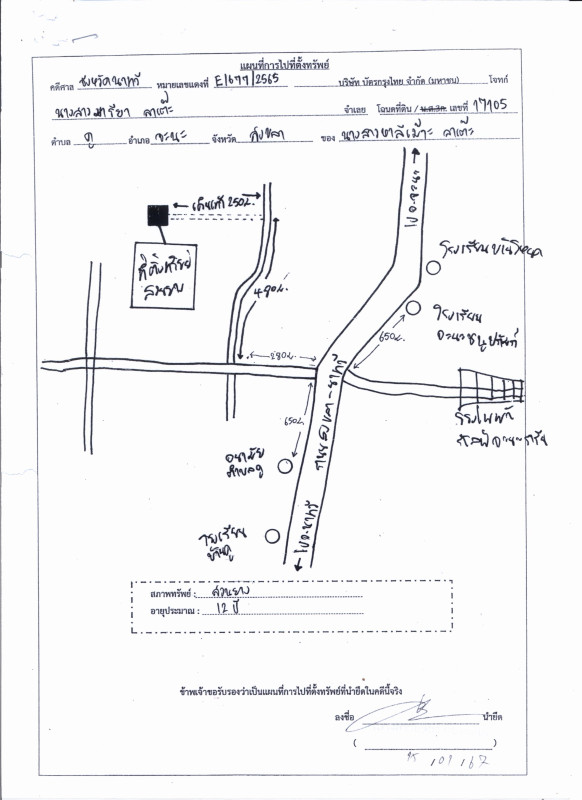 แผนที่การไปที่ตั้งทรัพย์
คดีศาล จังหวัดนาทวี หมายเลขแดงที่ E1677/2565 บริษัท บัตรกรุงไทย จำกัด (มหาชน) โจทก์
นางสาวมารียา ลาเต๊ะ จำเลย โฉนดที่ดิน / น.ส.3ก. เลขที่ 17105
ตำบล คู อำเภอ จะนะ จังหวัด สงขลา ของ
เดินเท้า 250ม.
ที่ตั้งทรัพย์
480ม.
280ม.
650ม.
650ม.
ไป อ.จะนะ
โรงเรียน
โรงเรียน
ถนนสงขลา-นาทวี
โรงไฟฟ้า
อนามัย
ตำบลคู
โรงเรียน
บ้านคู
ไป อ.นาทวี
สภาพทรัพย์ : สวนยาง
อายุประมาณ : 12 ปี
ข้าพเจ้าขอรับรองว่าเป็นแผนที่การไปที่ตั้งทรัพย์ที่นำยึดในคดีนี้จริง
ลงชื่อ นำยึด
( )